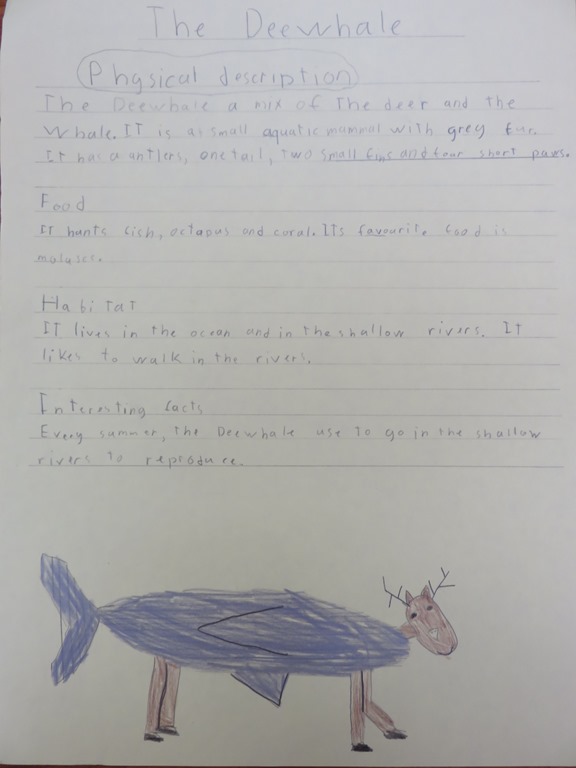 The Deewhale
Physical description
The Deewhale a mix of The deer and the
Whale. IT is a small aquatic mammal with grey fur.
It has a antlers, one tail, two small fins and fear short paws.
Food
IT hunts fish, octapus and coral. ITs favourite food is
moluscs.
Habitat
IT lives in the ocean and in the shallow rivers. It
likes to walk in the rivers.
Interesting facts
Every summer, the Deewhale use to go in the shallow
rivers to reproduce.